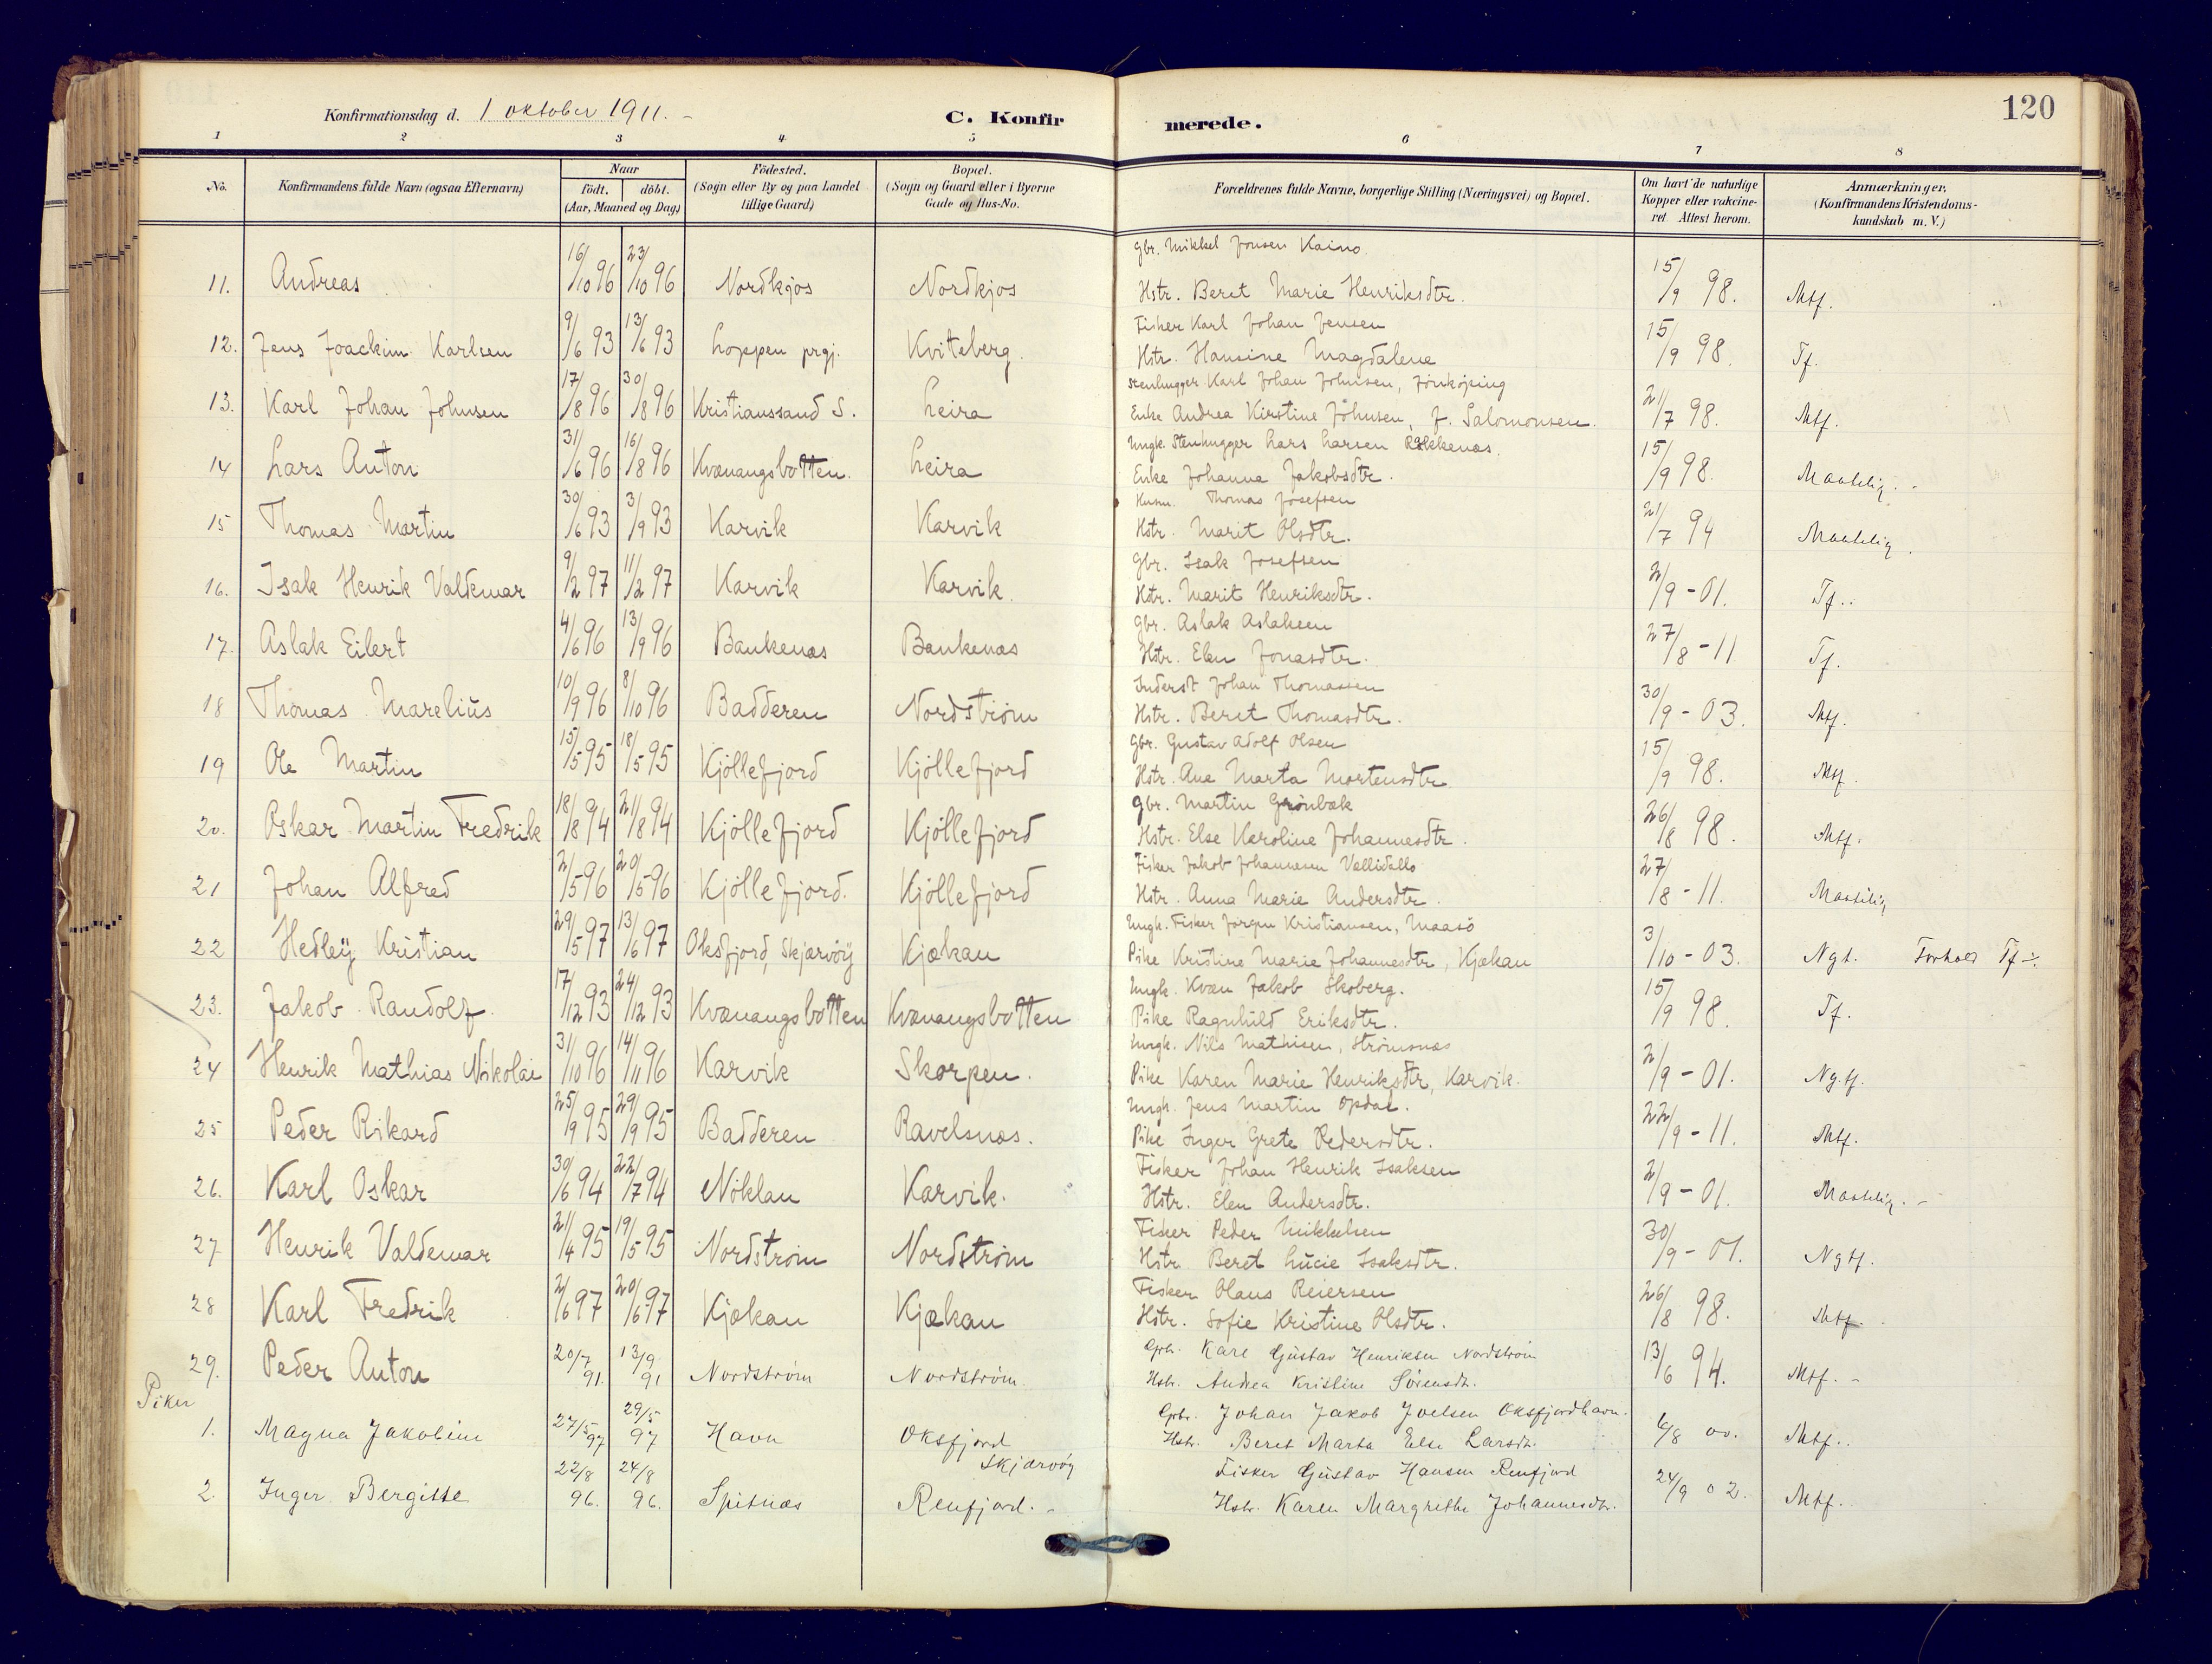 120
Konfirmationsdag d. 1 oktober 1911. -
C. Konfirmerede.
1 2 3 4 5 6 7 8
No.
Konfirmandens fulde Navn (ogsaa Efternavn)
Naar
födt. döbt.
(Aar, Maaned og Dag)
Födested.
(Sogn eller By og paa Landet
tillige Gaard)
Bopæl.
(Sogn og Gaard eller i Byerne
Gade og Hus-No.
Forældrenes fulde Navne, borgerlige Stilling (Næringsvei) og Bopæl.
Om havt de naturlige
Kopper eller vakcine-
ret. Attest herom.
Anmærkninger.
(Konfirmandens Kristendoms-
kundskab m. V.)
Gbr. Mikkel Jonsen Kaino.
11. Andreas 16/10 96 23/10 96 Nordkjos Nordkjos Hstr. Beret Marie Henriksdtr. 15/9 98. Mtf.
Fisker Karl Johan Jensen
12. Jens Joackim Karlsen 9/6 93 13/6 93 Loppen prgj. Kviteberg. Hstr. Hansine Magdalene 15/9 98. Tf.
Stenhugger Karl Johan Johnsen, Jönköping
13. Karl Johan Johnsen 17/8 96 30/8 96 Kristianssand S. Leira Enke Andrea Kirstine Johnsen, f. Salomonsen. 21/7 98. Mtf.
Ungk. Stenhugger Lars Larsen
14 Lars Anton 31/6 96 16/8 96 Kvænangsbotten. Leira Enke Johanna Jakobsdtr. 15/9 98. Maatelig. -
Husm. Thomas Josefsen
15 Thomas Martin 30/6 93 3/9 93 Karvik Karvik Hstr. Marit Olsdtr. 21/7 94 Maatelig.
Gbr. Isak Josefsen
16. Isak Henrik Valdemar 9/2 97 11/2 97 Karvik Karvik. Hstr. Marit Henriksdtr. 2/9 - 01. Tf..
Gbr. Aslak Aslaksen
17. Aslak Eilert 4/6 96 13/9 96 Bankenæs Bankenæs Hstr. Elen Jonasdtr. 27/8 - 11 Tf.
Inderst Johan Thomassen
18 Thomas Marelius 10/9 96 8/10 96 Badderen Nordstrøm Hstr. Beret Thomasdtr. 30/9 - 03. Mtf.
Gbr. Gustav Adolf Olsen
19 Ole Martin 15/5 95 18/5 95 Kjöllefjord Kjöllefjord Hstr. Ane Marta Mortensdtr 15/9 98. Mtf.
Gbr. Martin Grönbæk
20. Oskar Martin Fredrik 18/8 94 21/8 94 Kjöllefjord Kjöllefjord Hstr. Else Karoline Johannesdtr. 26/8 98. Mtf.
Fisker Jakob Johannesen
21 Johan Alfred 2/5 96 20/5 96 Kjöllefjord. Kjöllefjord Hstr. Anna Marie Andersdtr. 27/8 - 11. Maatelig
Ungk. Fisker Jørgen Kristiansen, Maasö
22 Hedley Kristian 29/5 97 13/6 97 Oksfjord, Skjærvöy Kjækan Pike Kristine Marie Johannesdtr, Kjækan 3/10 - 03. Ngt. Forhold Tf -:
Ungk. Kvæn Jakob Skoberg.
23. Jakob Randolf 17/12 93 24/12 93 Kvænangsbotten Kvænangsbotten Pike Ragnhild Eriksdtr. 15/9 98. Tf.
Ungk. Nils Mathisen, Strømsnæs
24 Henrik Mathias Nikolai 31/10 96 14/11 96 Karvik Skorpen. Pike Karen Marie Henriksdtr, Karvik. 2/9 - 01. Ngtf.
Ungk. Jens Martin Opdal.
25 Peder Rikard 25/9 95 29/9 95 Badderen Ravelsnæs. Pike Inger Grete Pedersdtr. 22/9 - 11. Mtf.
Fisker Johan Henrik Isaksen
26. Karl Oskar 30/6 94 22/7 94 Nöklan Karvik. Hstr. Elen Andersdtr. 2/9 - 01. Maatelig. -
Fisker Peder Mikkelsen
27 Henrik Valdemar 21/4 95 19/5 95 Nordstrøm Nordstrøm Hstr. Beret Lucie Isaksdtr. 30/9 - 01. Ngtf.
Fisker Olaus Reiersen
28 Karl Fredrik 2/6 97 20/6 97 Kjækan Kjækan Hstr. Sofie Kristine Olsdtr. 26/8 98. Mtf.
Gbr. Karl Gustav Henriksen Nordstrøm
29. Peder Anton 20/7 91. 13/9 91 Nordstrøm Nordstrøm. Hstr. Andrea Kristine Sørensdt. 13/6 94. Mtf. -
Piker
Gbr. Johan Jakob Joelsen Oksfjordhavn.
1. Magna Jakobine 27/5 97 29/5 97 Havn Oksfjord Skjærvöy Hstr. Beret Marta Else Larsdt. 6/8 00. Mtf..
Fisker Gustav Hansen Renfjord
2. Inger Bergitte 22/8 96. 24/8 96. Spitnæs Renfjord. - Hstr. Karen Margrethe Johannesdtr. 24/9 02. Mtf.